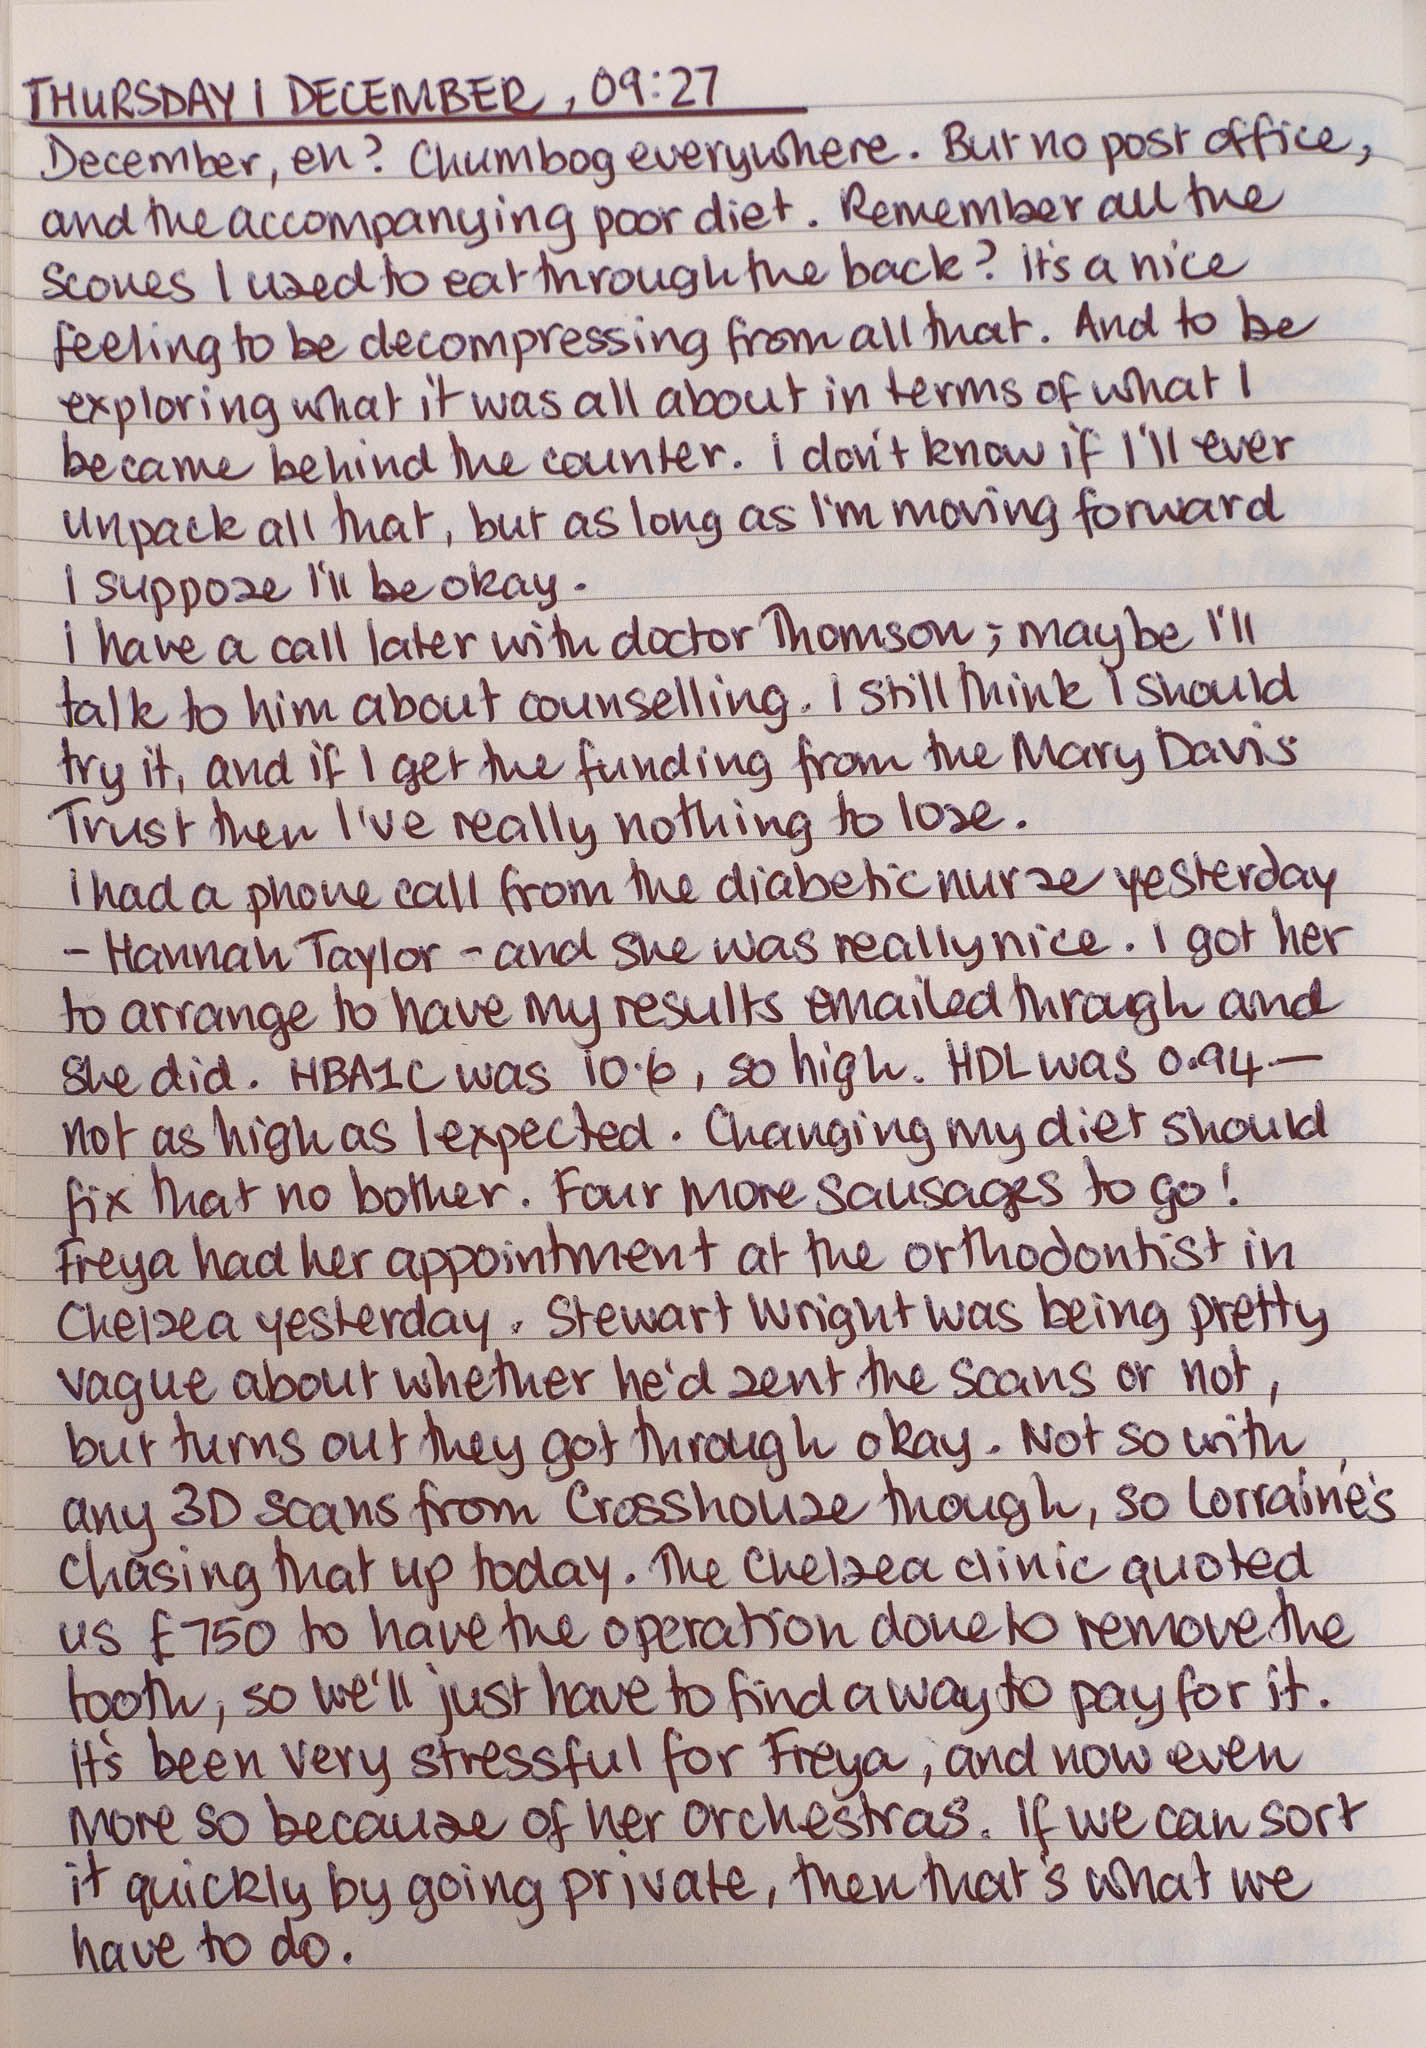 THURSDAY 1 DECEMBER, 09:27
December, eh? Chumbog everywhere. But no post office,
and the accompanying poor diet. Remember all the
scones I used to eat through the back? It's a nice
feeling to be decompressing from all that. And to be
exploring what it was all about in terms of what I
became behind the counter. I don't know if I'll ever
unpack all that, but as long as I'm moving forward
I suppose I'll be okay.
I have a call later with doctor Thomson; maybe I'll
talk to him about counselling. I still think I should
try it, and if I get the funding from the Mary Davis
Trust then I've really nothing to lose.
I had a phone call from the diabetic nurse yesterday
- Hannah Taylor - and she was really nice. I got her
to arrange to have my results emailed through and
she did. HBA1C was 10.6, so high. HDL was 0.94 —
not as high as I expected. Changing my diet should
fix that no bother. Four more sausages to go!
Freya had her appointment at the orthodontist in
Chelsea yesterday. Stewart Wright was being pretty
vague about whether he'd sent the scans or not,
but turns out they got through okay. Not so with
any 3D scans from Crosshouse though, so Lorraine's
chasing that up today. The Chelsea clinic quoted
us £750 to have the operation done to remove the
tooth, so we'll just have to find a way to pay for it.
It's been very stressful for Freya, and now even
more so because of her orchestras. If we can sort
it quickly by going private, then that's what we
have to do.